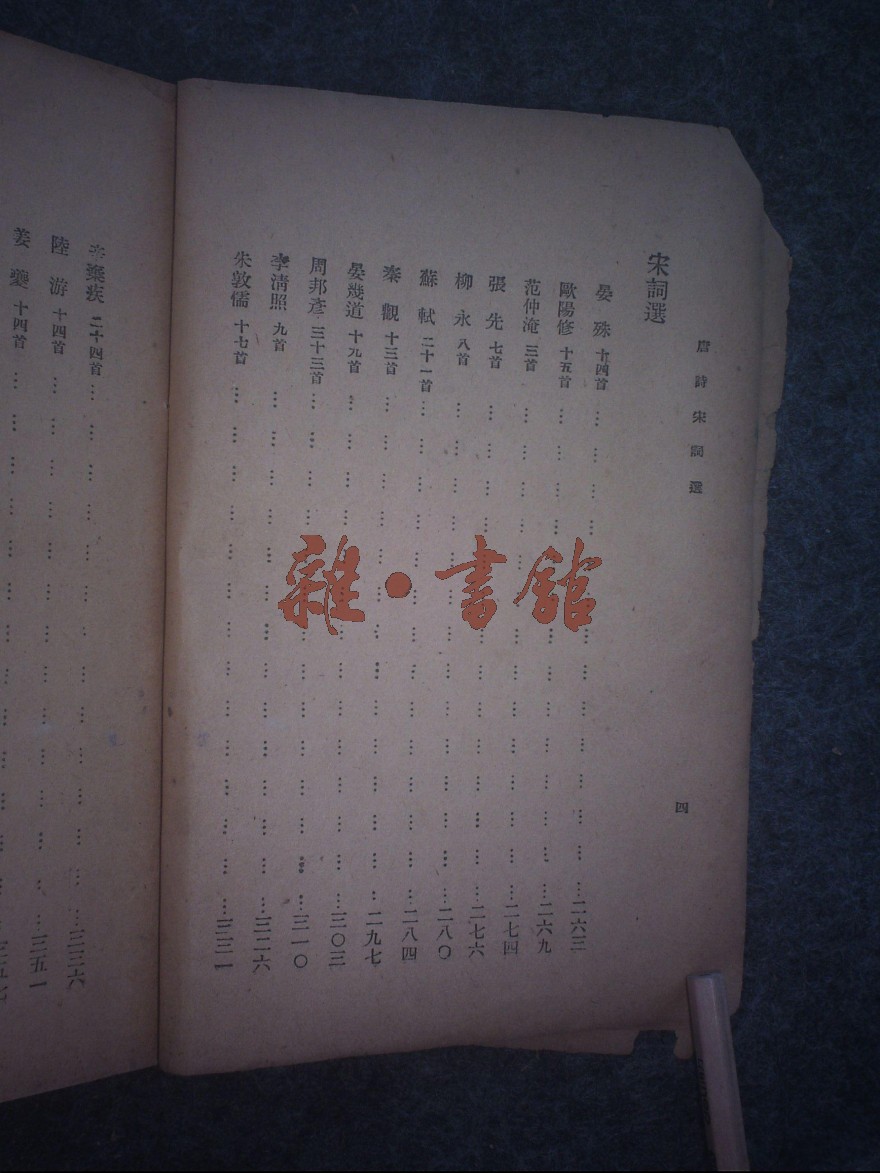 唐詩宋詞選
四
宋詞選
晏 殊 十四首 … 二六三
歐陽修 十五首 … 二六九
范仲淹 三首 … 二七四
張 先 七首 … 二七六
柳 永 八首 … 二八〇
蘇 軾 二十一首 … 二八四
秦 觀 十三首 … 二九七
晏幾道 十九首 … 三〇三
周邦彥 三十三首 … 三一〇
李清照 九首 … 三二六
朱敦儒 十七首 … 三三一
辛棄疾 二十四首 … 三三六
陸 游 十四首 … 三五一
姜 夔 十四首 …
雜·書館